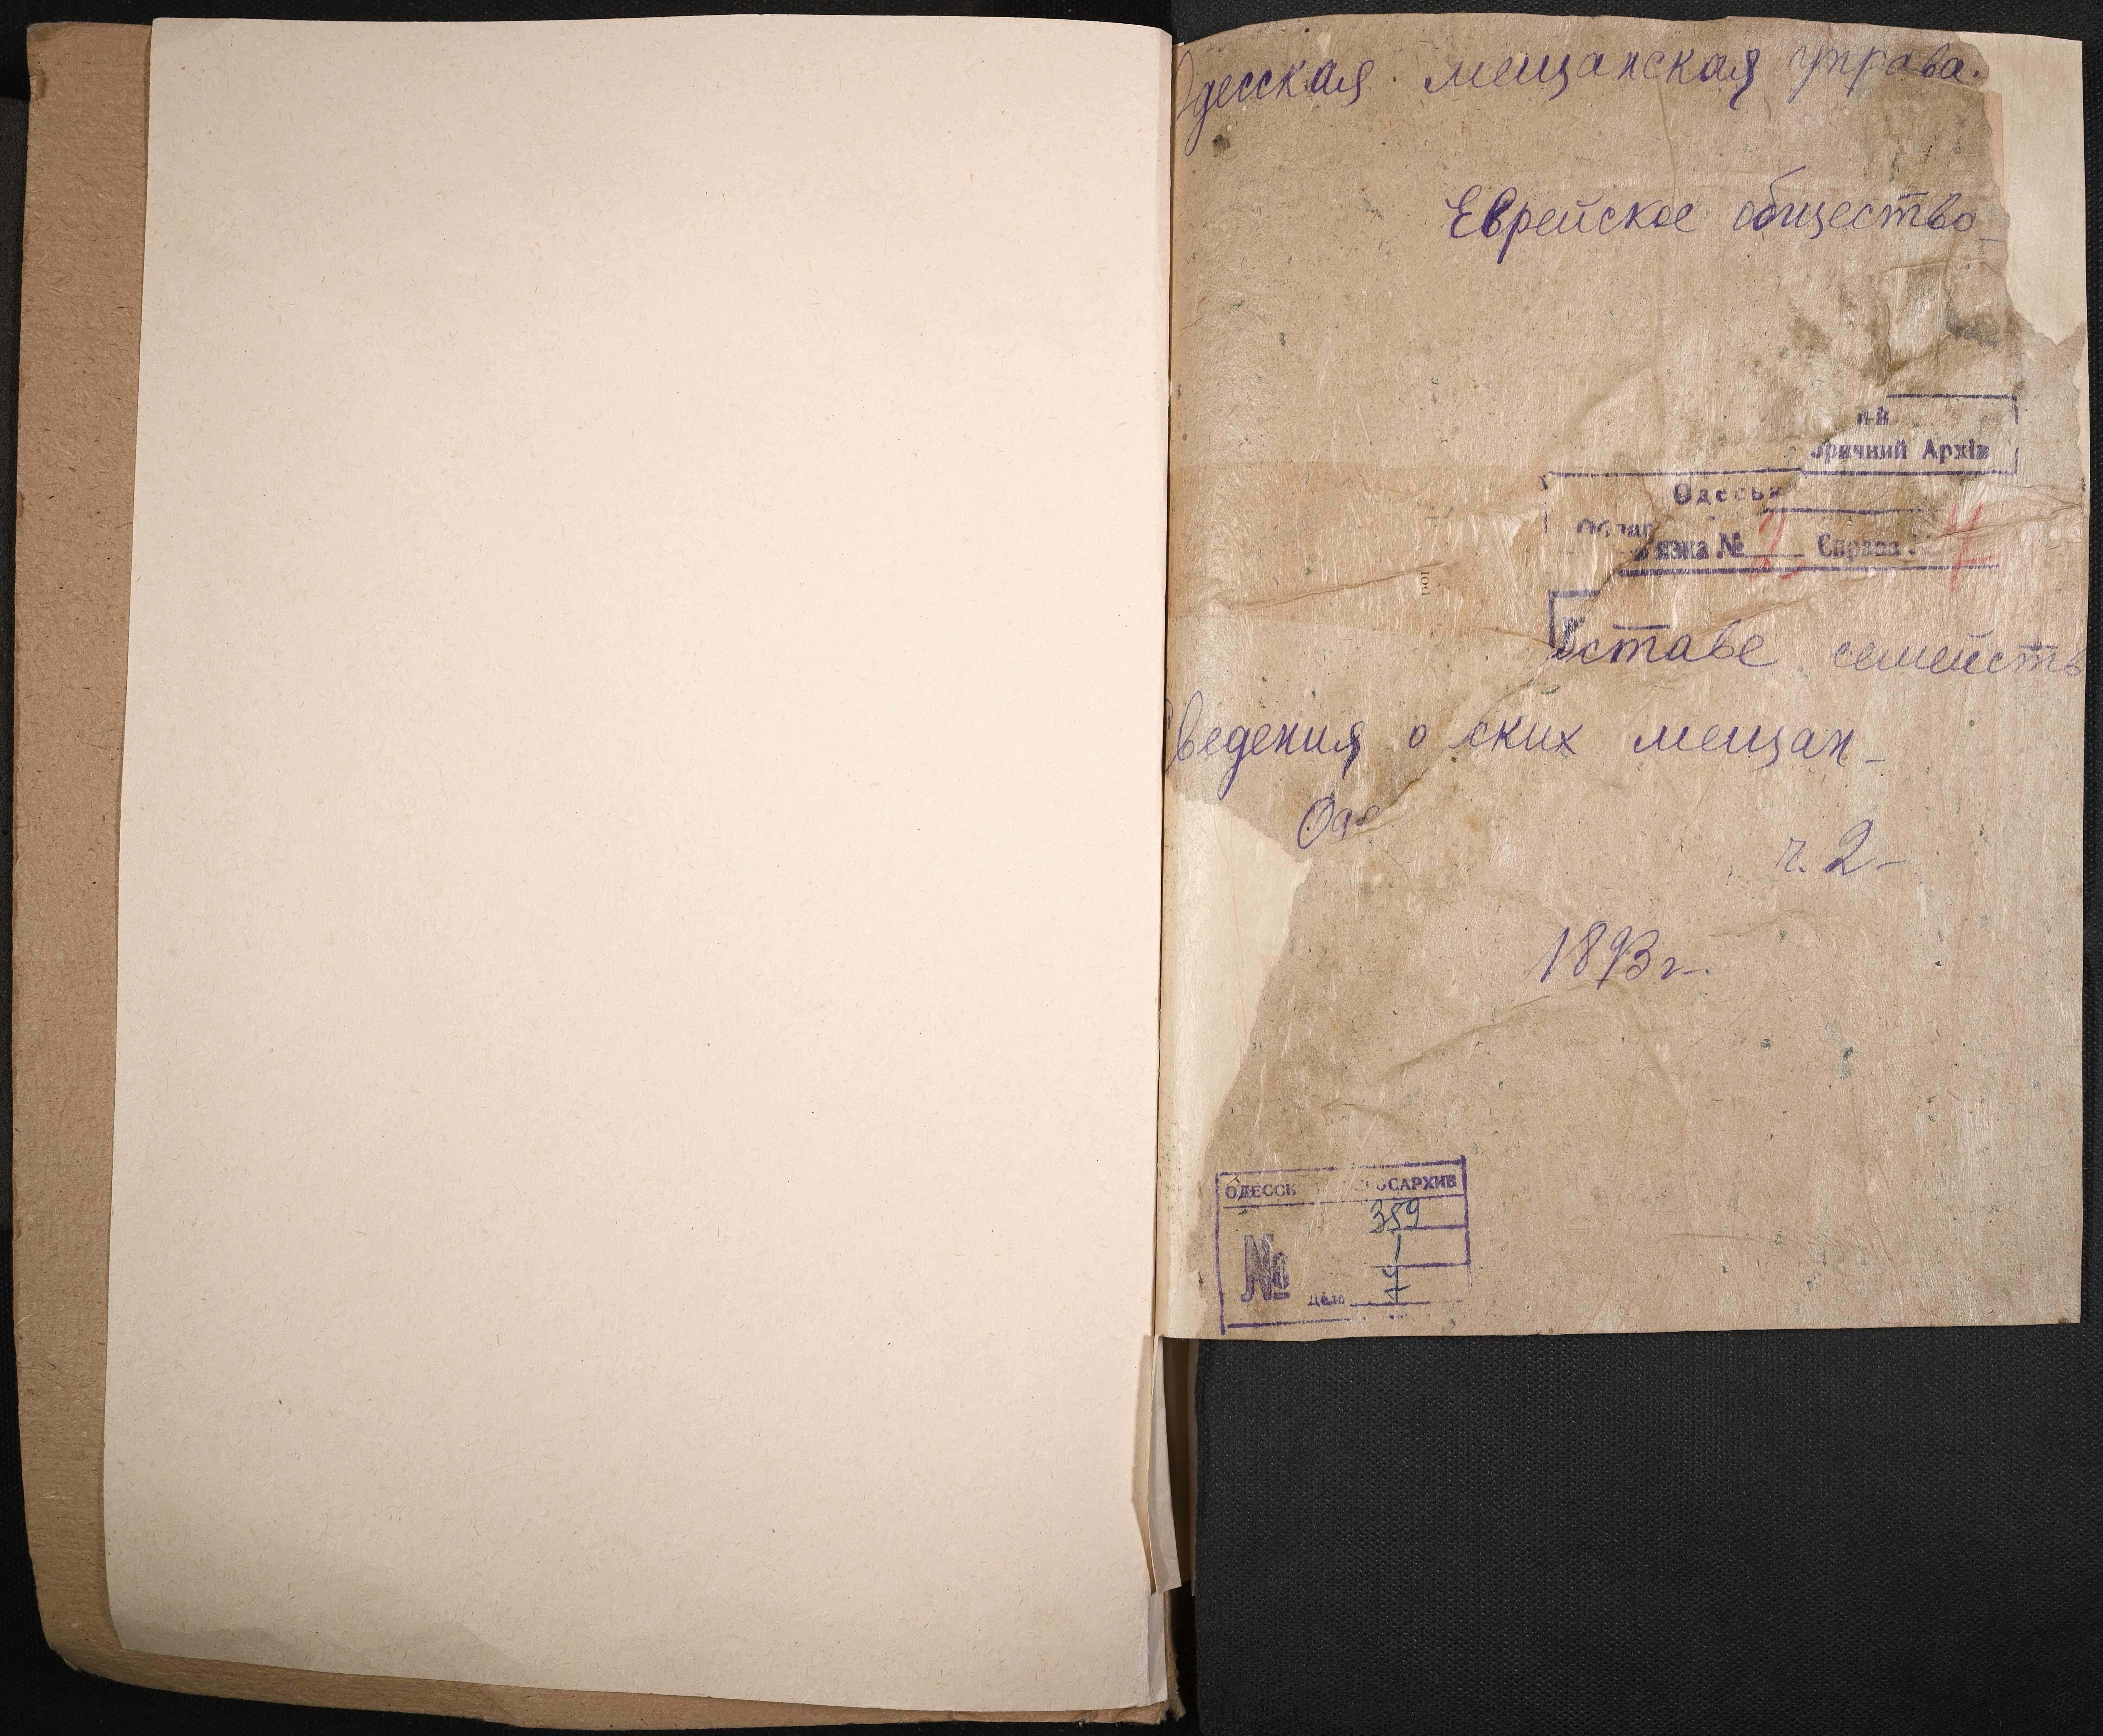 Одесская мещанская управа.
Еврейское общество
ричний Архів
Одеськ
Облас
язка № 2 Справа № 7
ставе семейств
ведения о ских мещан
Оде
ч. 2
1893 г.
ОДЕССК ОСАРХИВ
359
1
№ дело 7